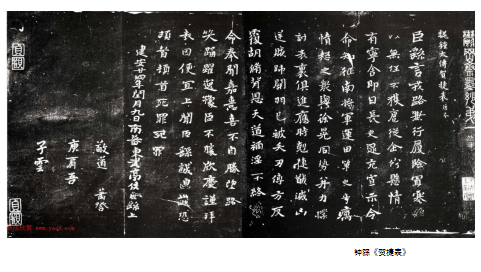 魏鍾太傅賀捷表
臣繇言戎路兼行履險冒寒臣
以無任不獲扈從企佇懸情無
有寧舍即日長史逯充宣示令
命知征南將軍運田單之奇厲
憤怒之衆與徐晃同勢并力撲
討表裏俱進應時剋捷馘滅凶
逆賊帥關羽已被矢刃傅方反
覆胡脩背恩天道禍淫不終厥
命奉聞嘉憙喜不自勝望路載
笑踊躍逸豫臣不勝欣慶謹拜
表因便宜上聞臣繇誠惶誠恐
頓首頓首死罪死罪
建安廿四年閏月九日南蕃東武亭侯臣繇上
子雲
貞觀
貞觀
钟繇《贺捷表》